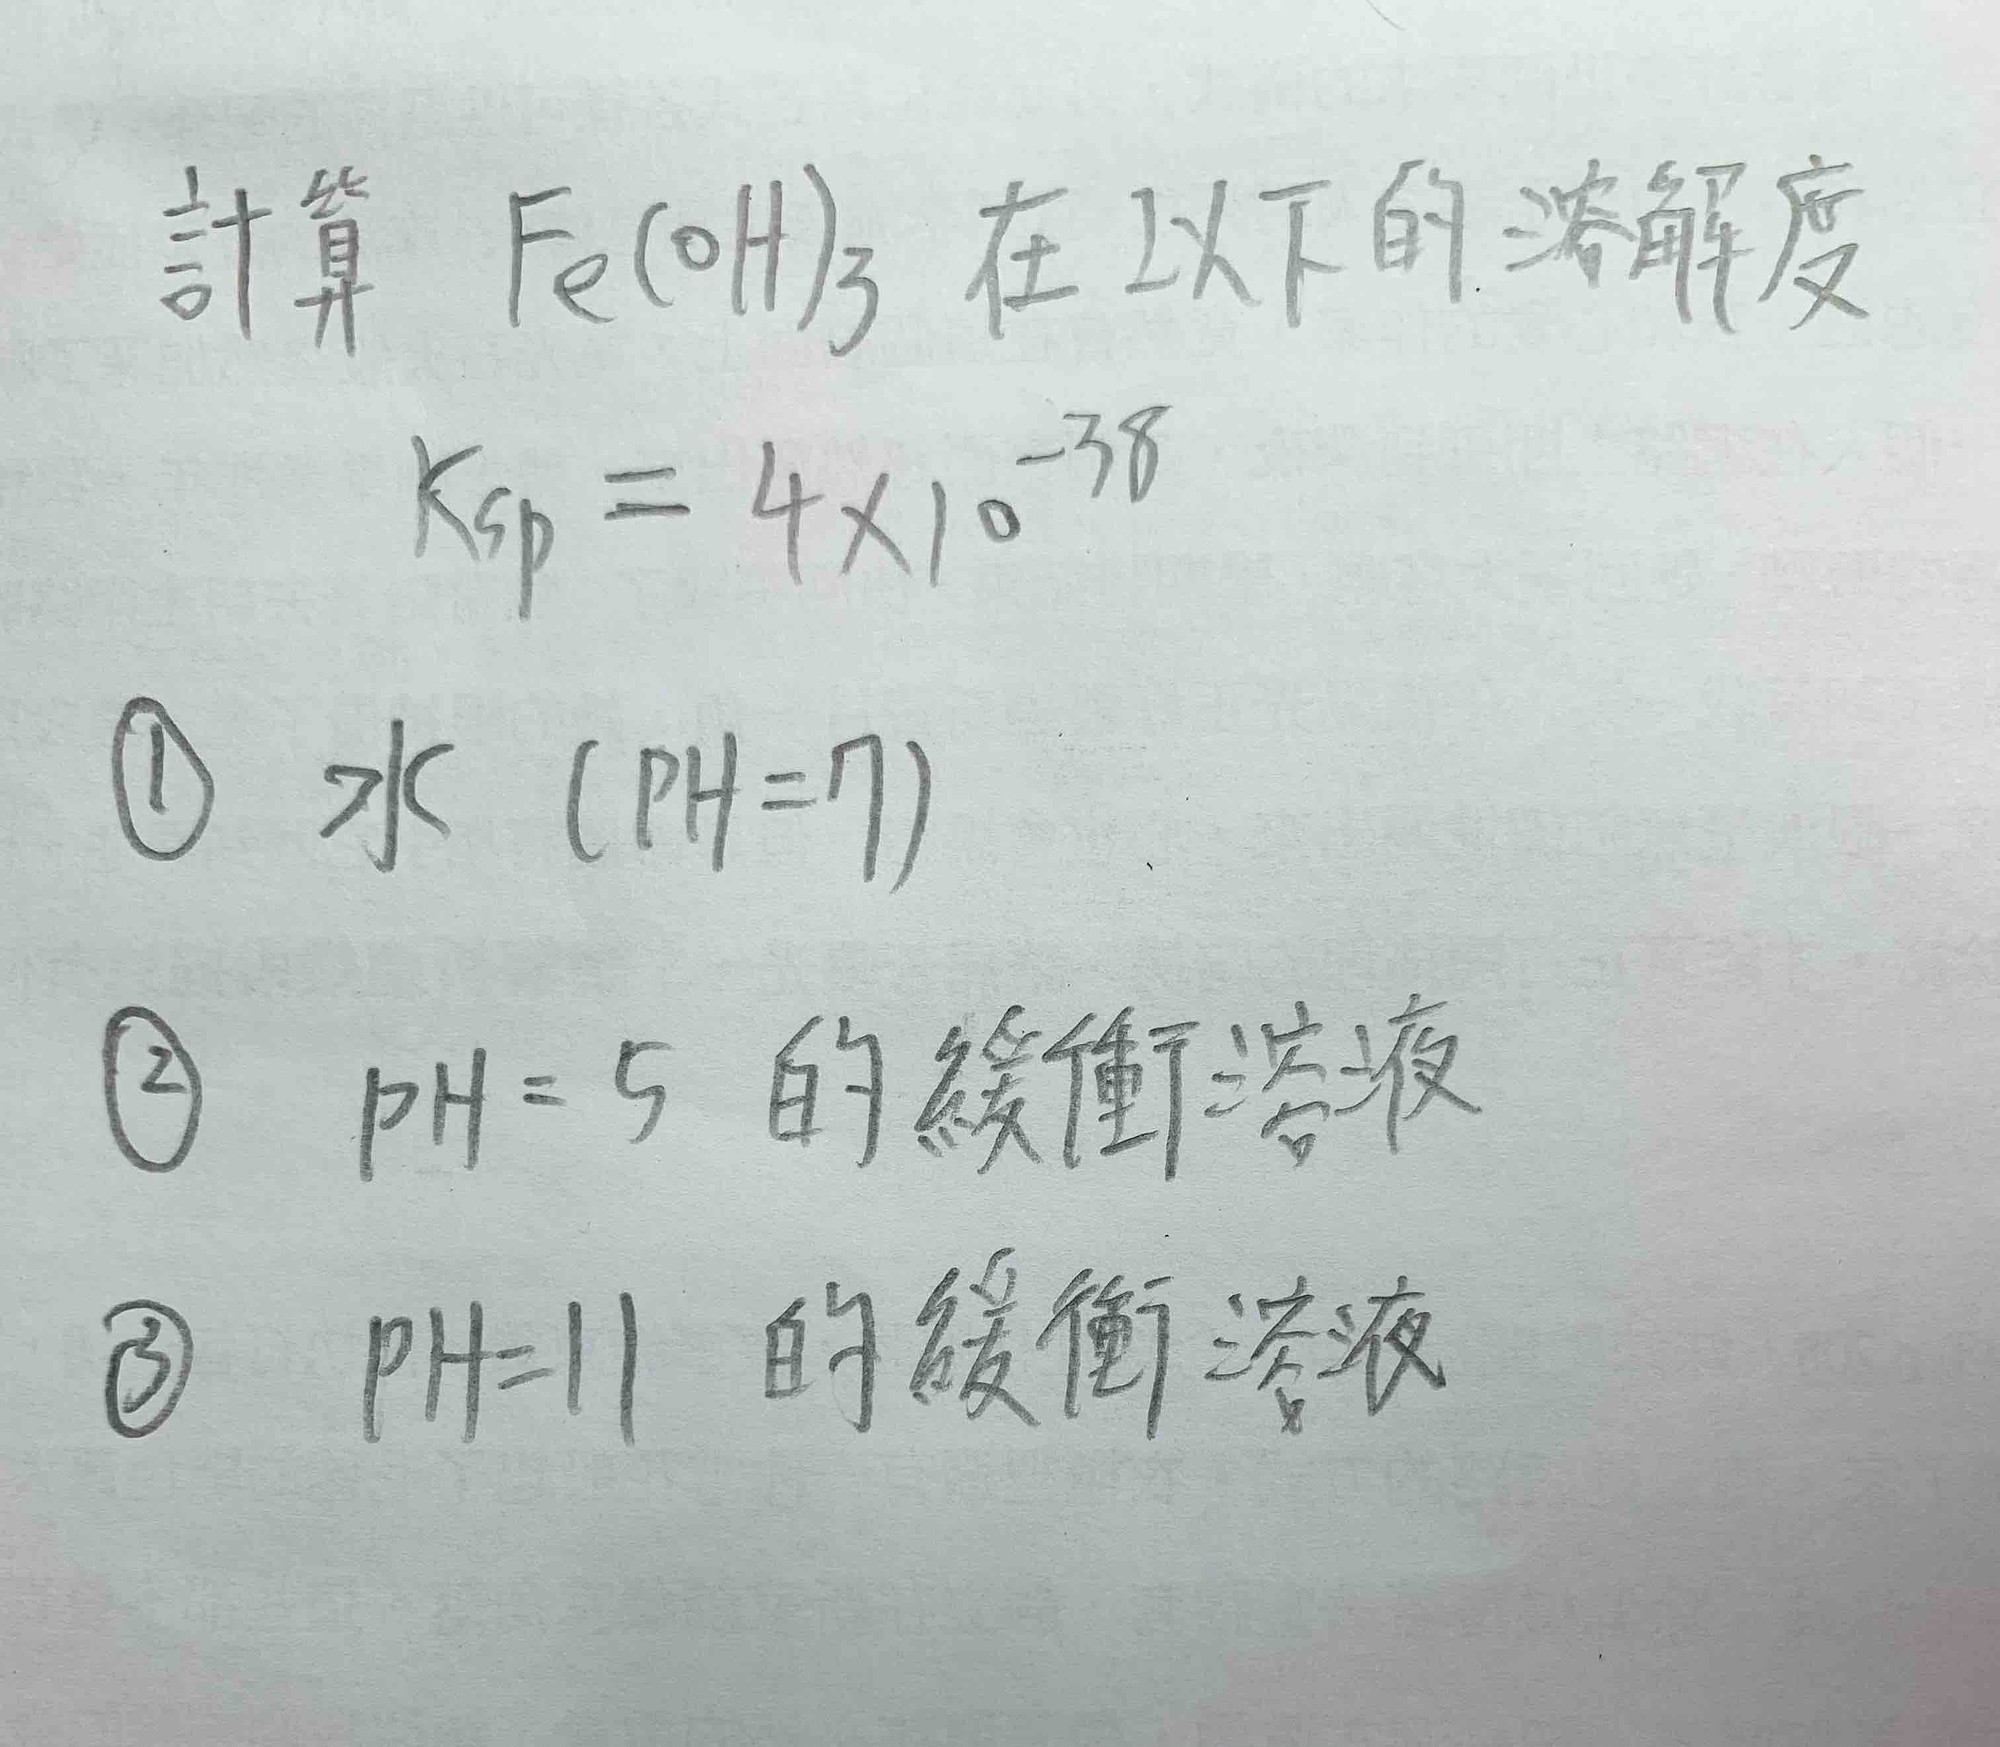 計算 Fe(OH)3 在以下的溶解度
Ksp = 4×10^-38
① 水 (PH=7)
② pH=5 的緩衝溶液
③ PH=11 的緩衝溶液